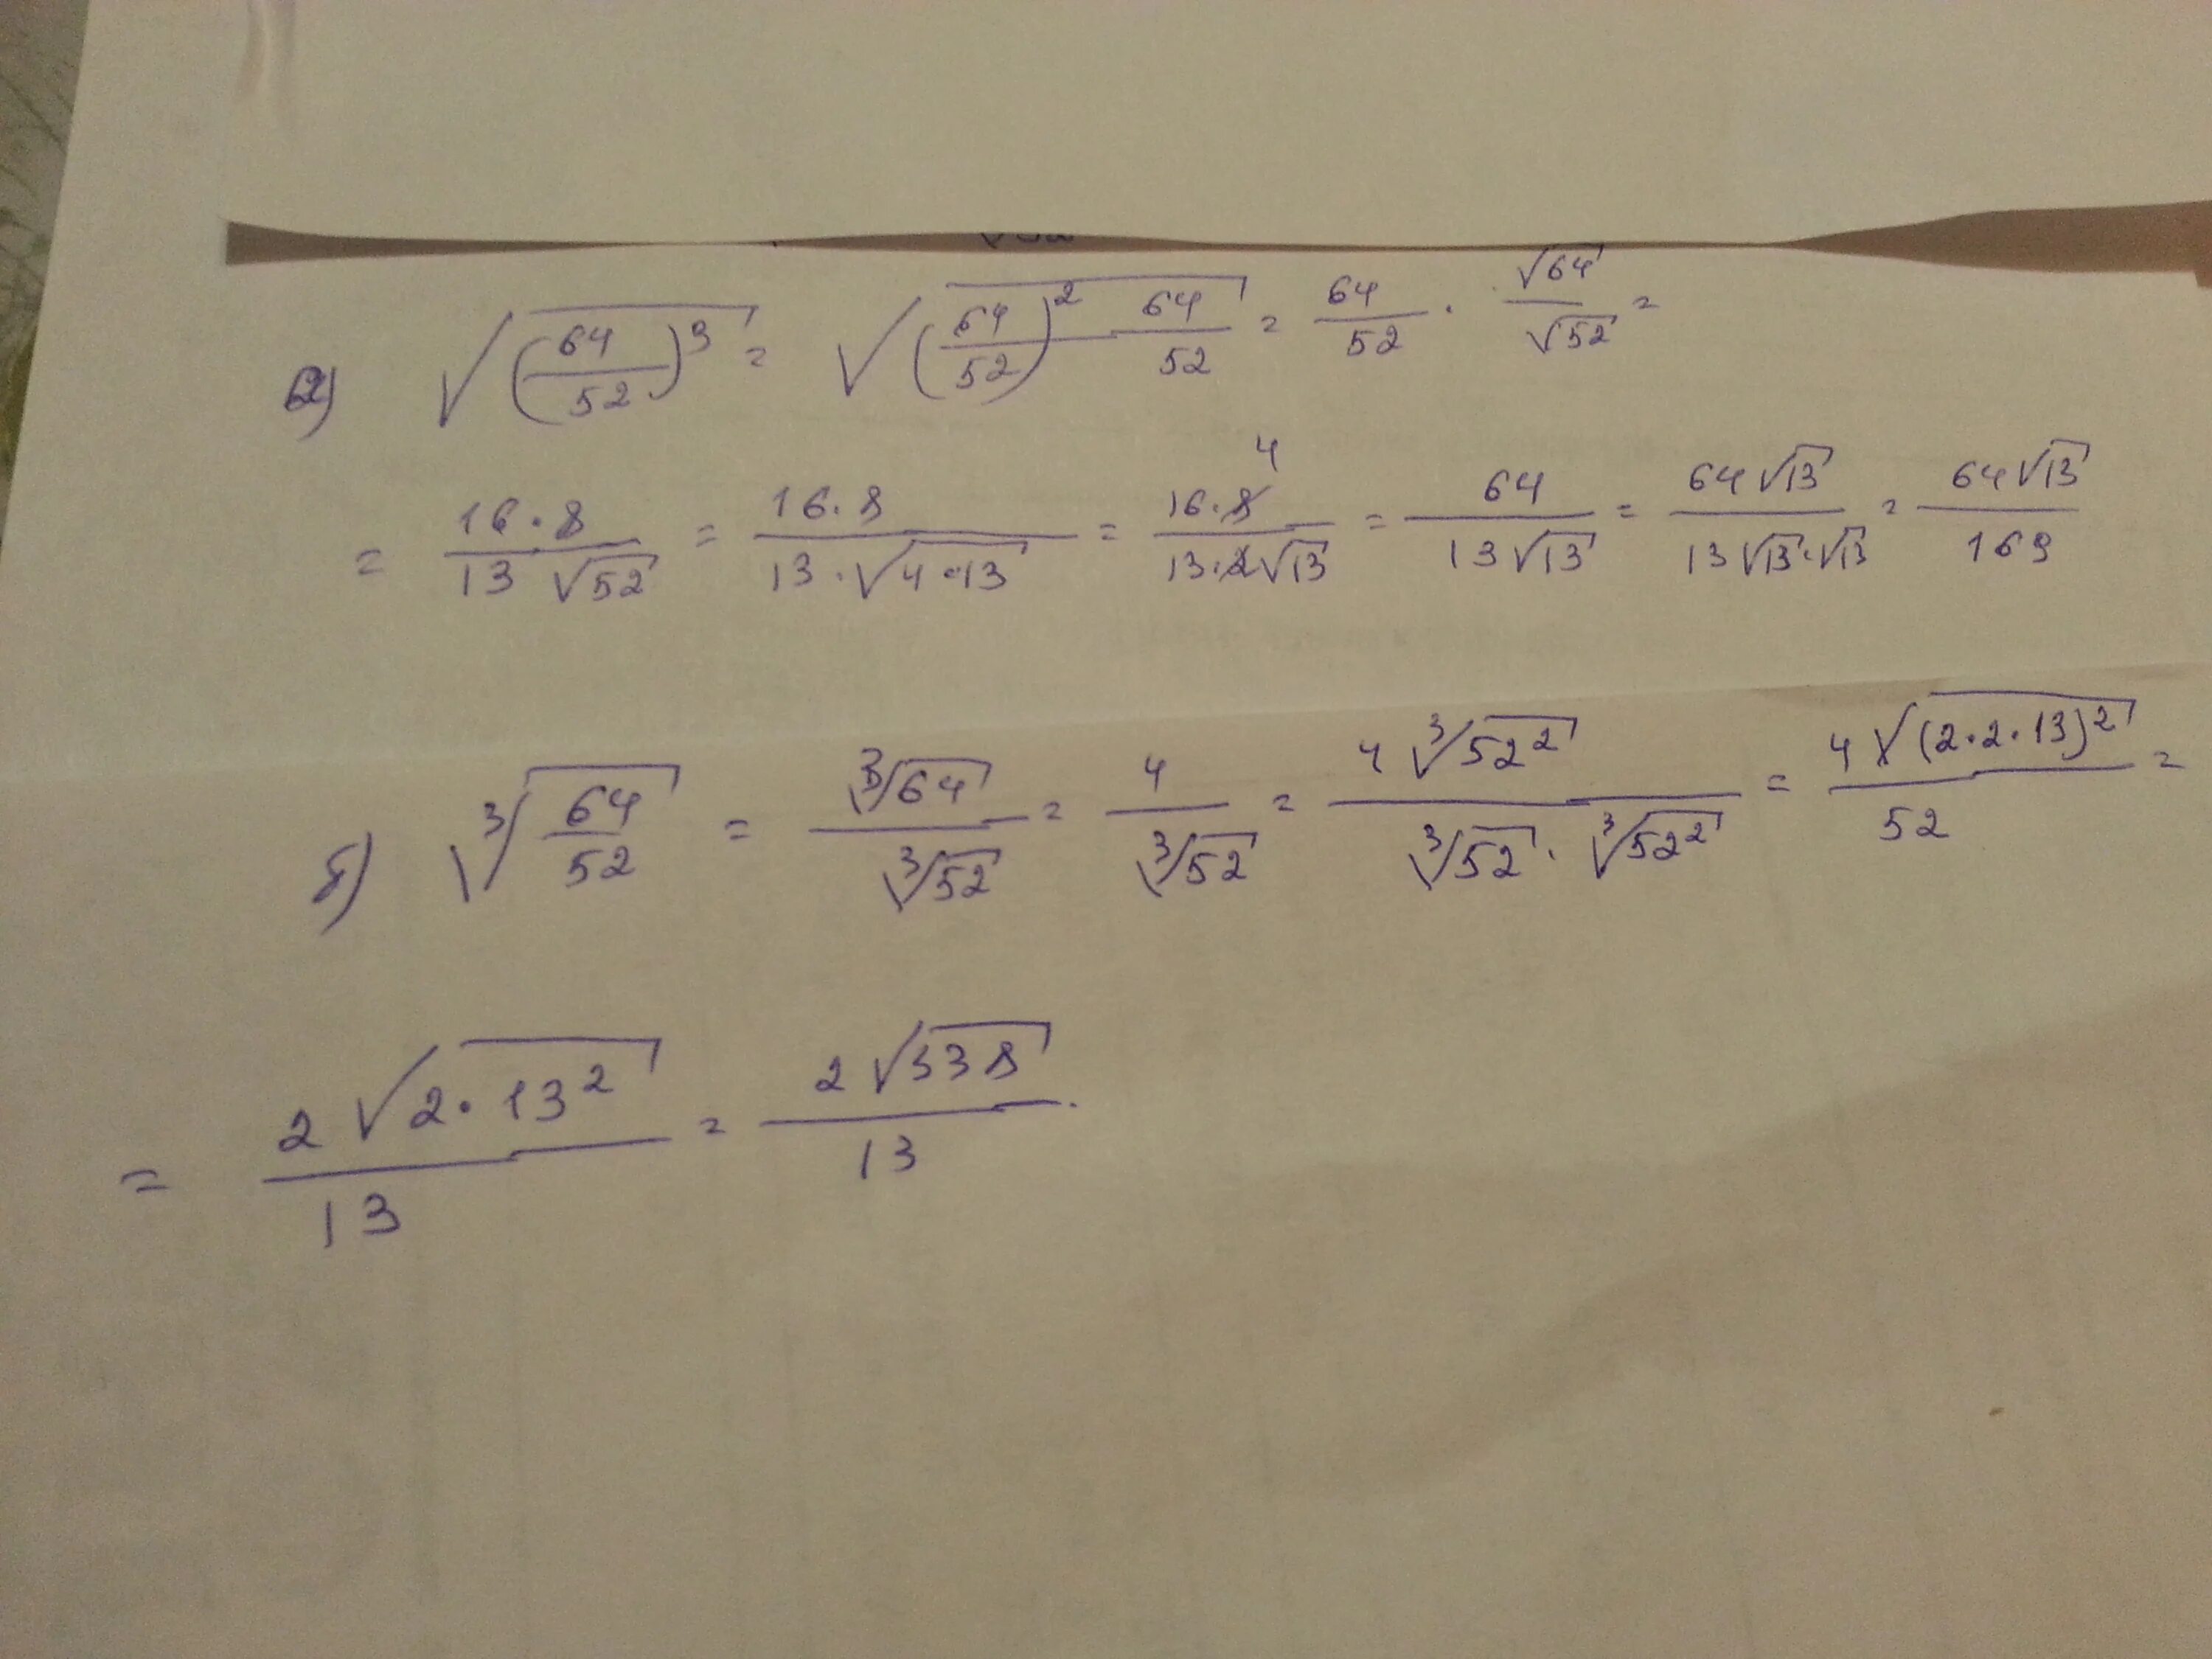 а) √((64/52)³) = √((64/52)² 64/52) = 64/52 · √64/√52 =
= 16·8/13 √52 = 16·8/13·√(4·13) = 16·8 4/13·2√13 = 64/13√13 = 64√13/13√13·√13 = 64√13/169
б) ³√(64/52) = ³√64/³√52 = 4/³√52 = 4 ³√52²/³√52 · ³√52² = 4√(2·2·13)²/52 =
= 2√(2·13²)/13 = 2√338/13.